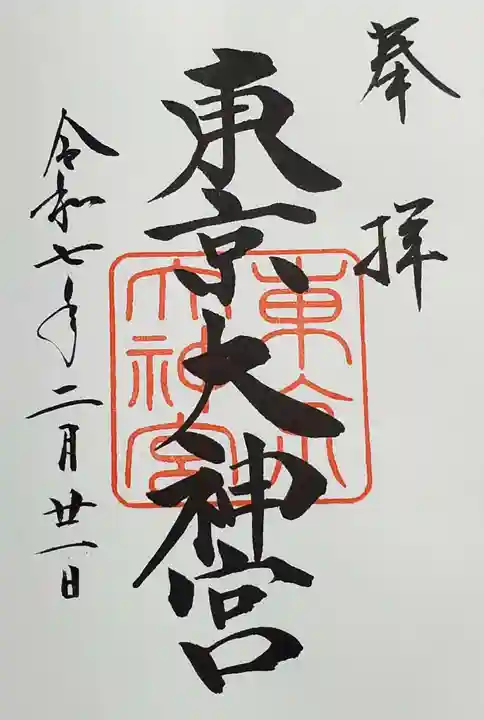 奉拝
東京大神宮
東京
大神宮
令和七年二月廿一日